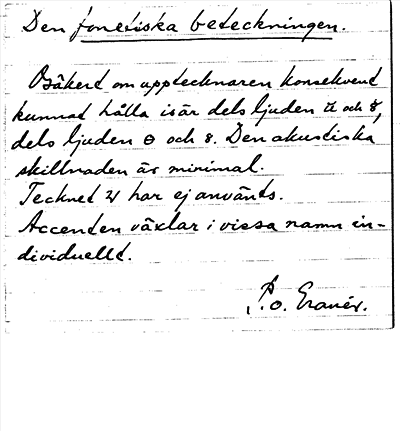 Den fonetiska beteckningen.
Osäkert om upptecknaren konsekvent
kunnat hålla isär dels ljuden och 8,
dels ljuden ɵ och 8. Den akustiska
skillnaden är minimal.
Tecknet har ej använts.
Accenten växlar i vissa namn in-
dividuellt.
P.O.